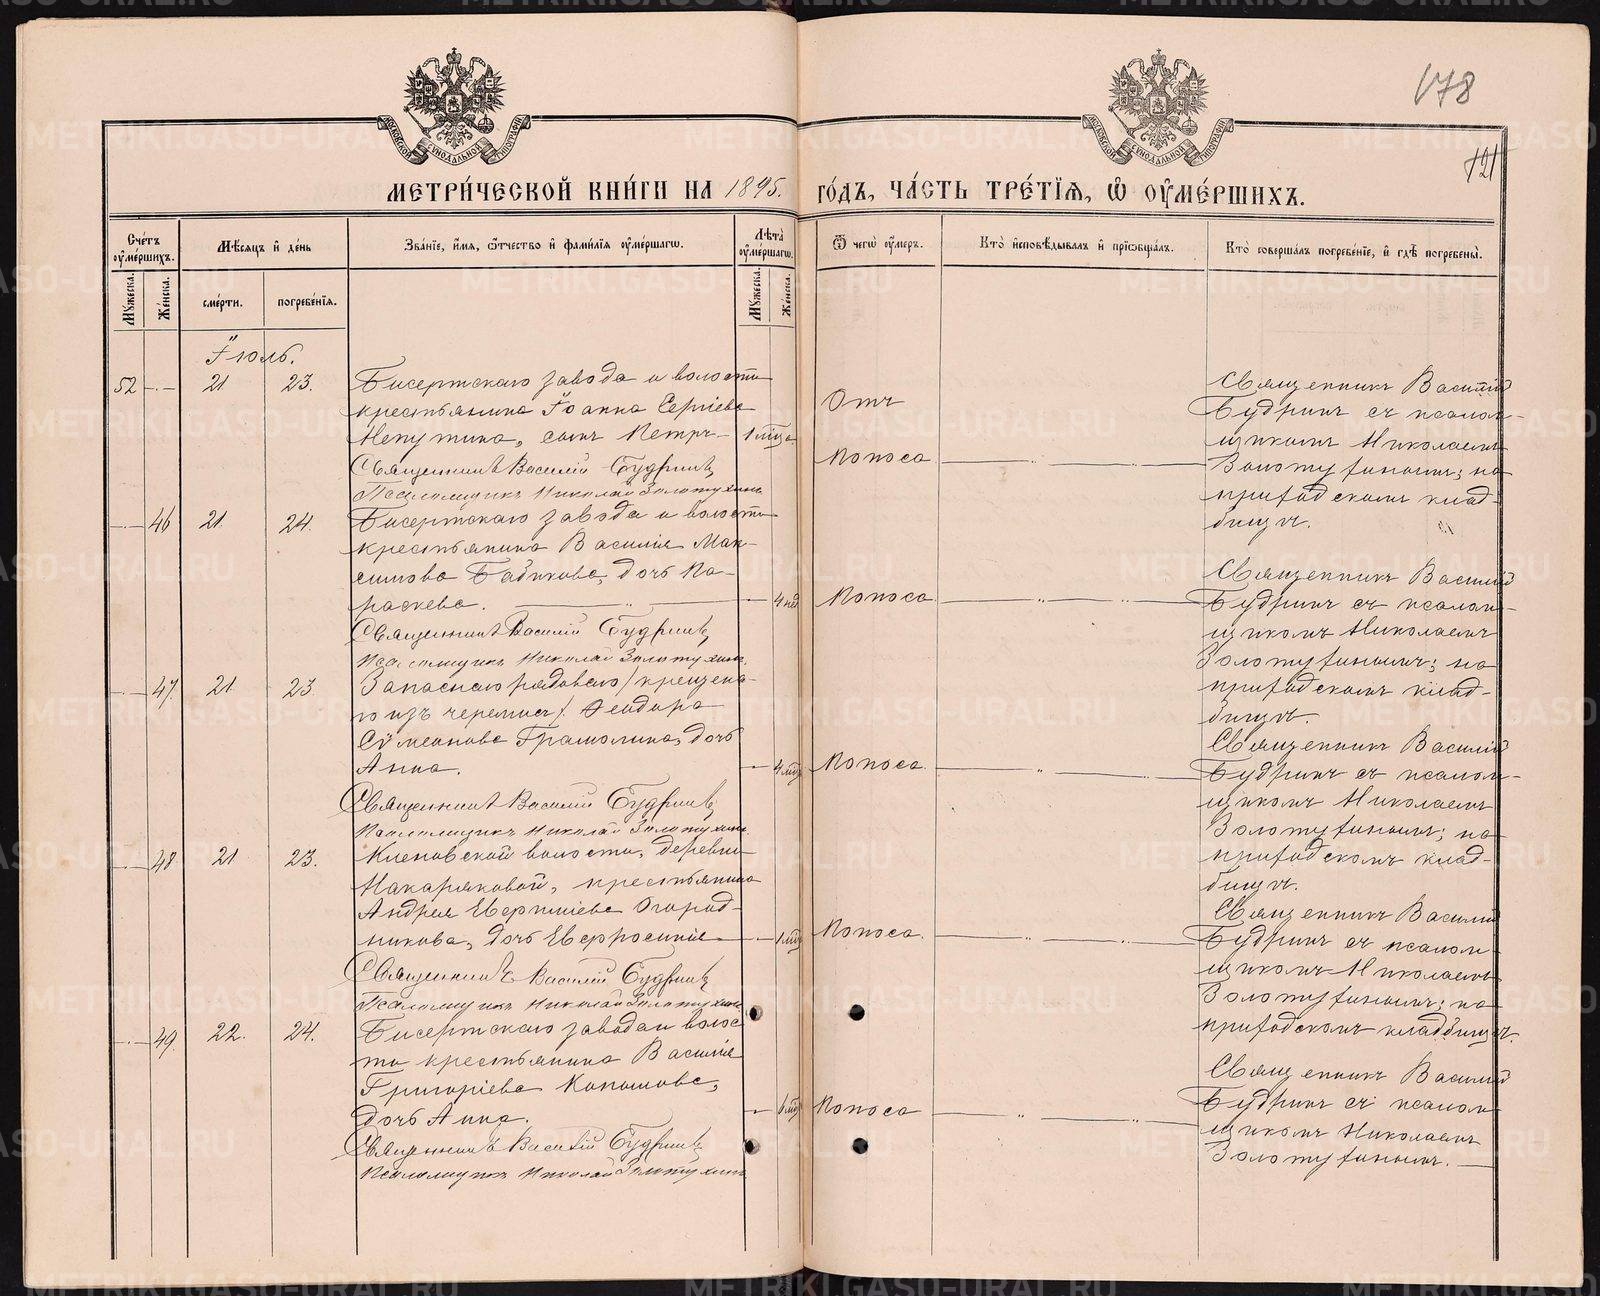 178
121
МОСКОВСКОЙ СѴНОДАЛЬНОЙ ТИПОГРАФІИ
МОСКОВСКОЙ СѴНОДАЛЬНОЙ ТИПОГРАФІИ
МЕТРИ́ЧЕСКОЙ КНИ́ГИ НА 1895. ГО́ДЪ, ЧА́СТЬ ТРЕ́ТІѦ, Ѽ ОУ҆МЕ́РШИХЪ.
Сче́тъ оу҆ме́ршихъ.
Мꙋ́жеска.
Же́нска.
Мѣ́сѧцъ и҆ де́нь
сме́рти.
погребе́нїѧ.
Зва́нїе, и҆́мѧ, ѻ҆́тчество и҆ фами́лїѧ оу҆ме́ршагѡ.
Лѣ́та оу҆ме́ршагѡ.
Мꙋ́жеска.
Же́нска.
Ѿ чегѡ̀ оу҆́меръ.
Кто̀ и҆сповѣ́дывалъ и҆ прїѡбща́лъ.
Кто̀ соверша́лъ погребе́нїе, и҆ гдѣ̀ погребены̀.
Іюль.
52 21 23. Бисертскаго завода и волости
крестьянина Іоанна Сергіева
Непутина, сынъ Петръ 1 мѣсца
Священникъ Василій Будринъ
Псаломщикъ Николай Золотухинъ
Отъ
поноса
Священникъ Василій
Будринъ съ псалом-
щикомъ Николаемъ
Золотухинымъ; на
приходскомъ клад-
бищѣ.
46 21. 24. Бисертскаго завода и волости
крестьянина Василія Мак-
симова Бабикова, дочь Па-
раскева. 4 нед
Священникъ Василій Будринъ
Псаломщикъ Николай Золотухинъ.
Поноса
Священникъ Василій
Будринъ съ псалом-
щикомъ Николаемъ
Золотухинымъ; на
приходскомъ клад-
бищѣ.
47. 21 23 Запаснаго рядоваго /крещена-
го изъ черемисъ/ Ѳеодора
Сѵмеонова Грамолина, дочь
Анна. 4 мѣс
Священникъ Василій Будринъ
Псаломщикъ Николай Золотухинъ
Поноса
Священникъ Василій
Будринъ съ псалом-
щикомъ Николаемъ
Золотухинымъ; на
приходскомъ клад-
бищѣ.
48 21 23. Кленовской волости, деревни
Макаряковой, крестьянина
Андрея Евгеніева Огород-
никова, дочь Евфросинія 1 мѣс
Священникъ Василій Будринъ
Псаломщикъ Николай Золотухинъ
Поноса.
Священникъ Василій
Будринъ съ псалом-
щикомъ Николаемъ
Золотухинымъ; на
приходскомъ кладбищѣ.
49. 22. 24. Бисертскаго завода и волос-
ти крестьянина Василія
Григоріева Копошова,
дочь Анна. мѣс
Священникъ Василій Будринъ
Псаломщикъ Николай Золотухинъ
Поноса
Священникъ Василій
Будринъ съ псалом-
щикомъ Николаемъ
Золотухинымъ.
METRIKI.GASO-URAL.RU